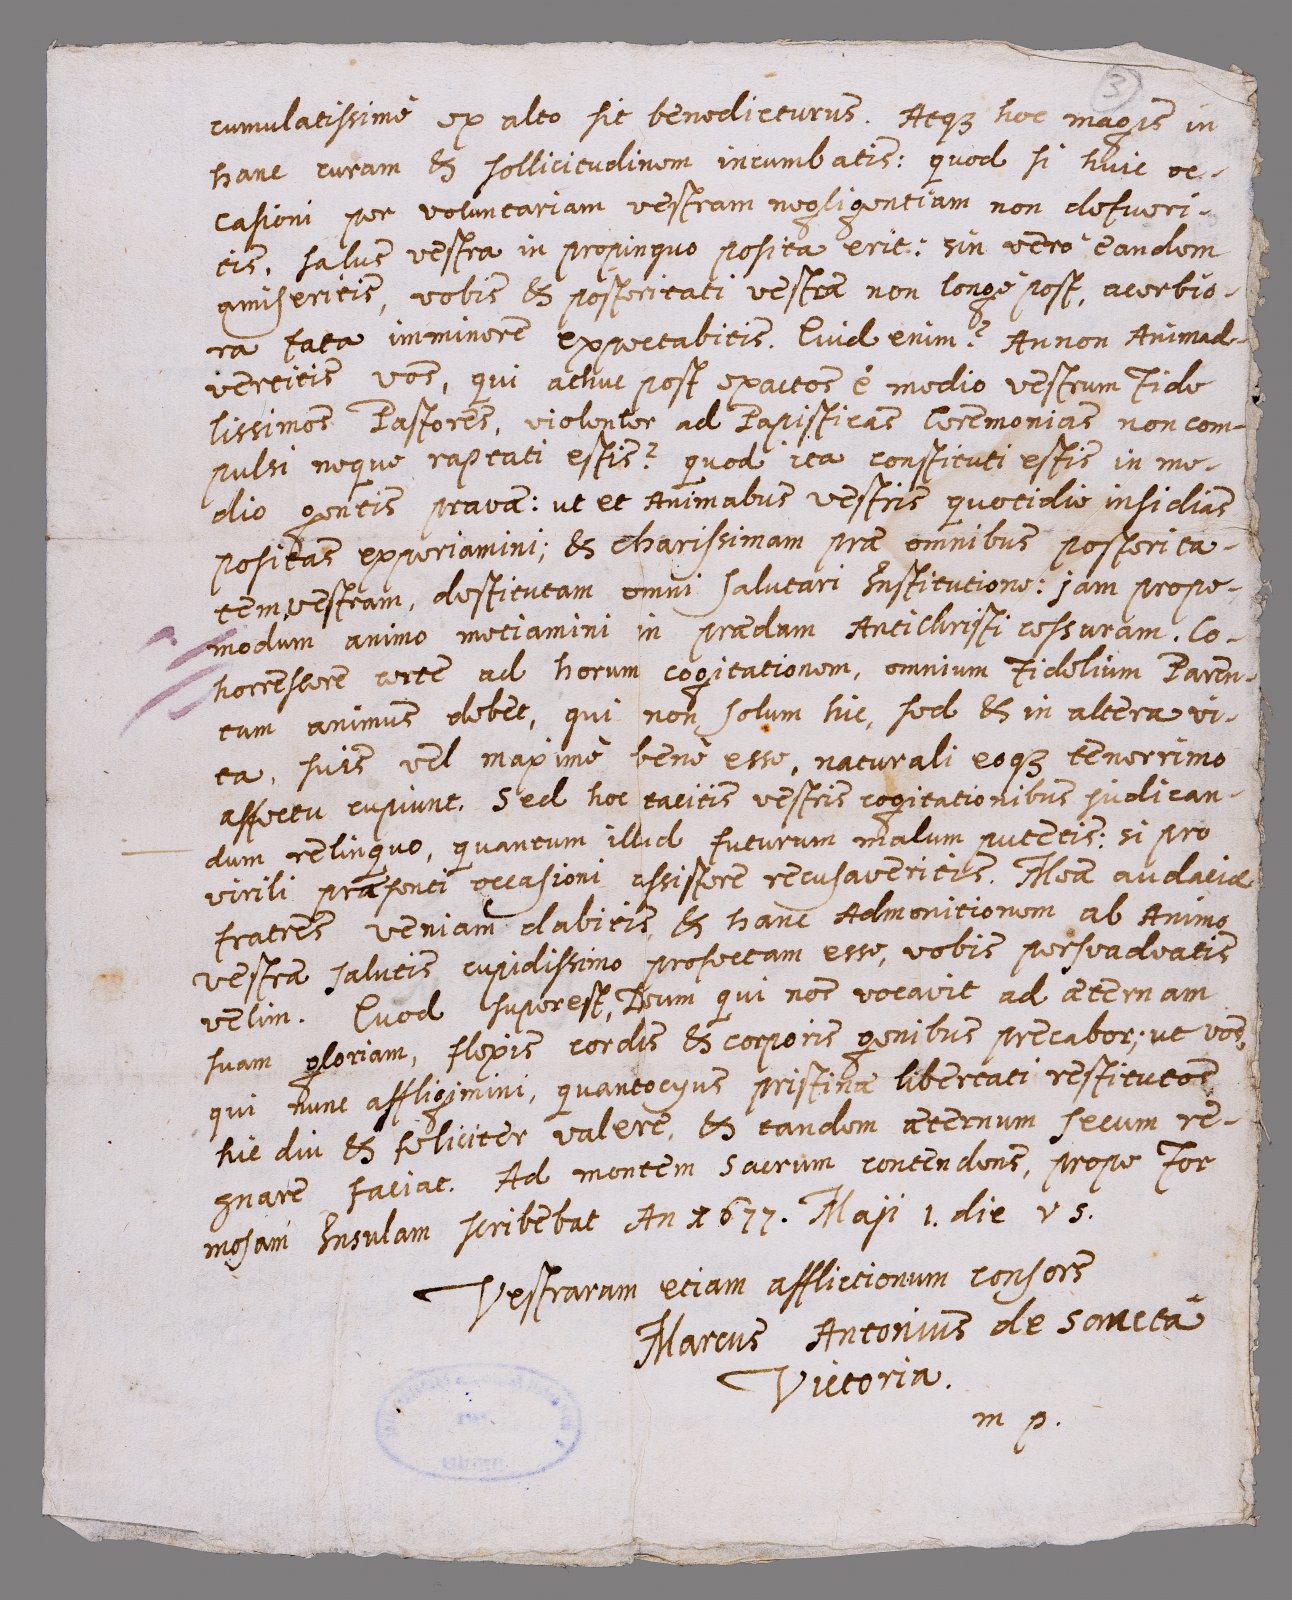 3
cumulatissimè ex alto sit benedicturus. Atqꝫ hoc magis in
hanc curam & sollicitudinem incumbatis: quod si huic oc-
casioni per voluntariam vestram negligentiam non defueri-
tis, salus vestra in propinquo posita erit: sin verò eandem
amiseritis, vobis & posteritati vestræ non longè post, acerbio-
ra fata imminere expectabitis. Quid enim? Annon Animad-
vertitis vos, qui adhuc post exactos è medio vestrum Fide
lissimos Pastores, violenter ad Papisticas Ceremonias non com-
pulsi neque raptati estis? quod ita constituti estis in me-
dio gentis pravæ: ut et Animabus vestris quotidie insidias
positas experiamini; & charissimam præ omnibus posterita-
tem vestram, destitutam omni salutari Institutione: jam prope-
modum animo metiamini in prædam Antichristi cessuram. Co-
horrescere certe ad horum cogitationem, omnium Fidelium Paren-
tum animus debet, qui non solum hic, sed & in altera vi-
ta, suis vel maximè benè esse, naturali eoqꝫ tenerrimo
affectu cupiunt. Sed hoc tacitis vestris cogitationibus judican-
dum relinquo, quantum illud futurum malum putetis: si pro
virili præsenti occasioni assistere recusaveritis. Meæ audaciæ
fratres veniam dabitis, & hanc Admonitionem ab Animo
vestræ salutis cupidissimo profectam esse, vobis persuadeatis
velim. Quod superest, Deum qui nos vocavit ad æternam
suam gloriam, flexis cordis & corporis genibus precabor; ut vos,
qui nunc affligimini, quantocyus pristinæ libertati restitutos,
hic diu & feliciter valere, & tandem æternum secum re-
gnare faciat. Ad montem Sacrum contendens, prope For
mosam Insulam scribebat An 1677. Maji 1. die v s.
Vestraram etiam afflictionum consors
Marcus Antonius de Sanctâ
Victoria.
m p.